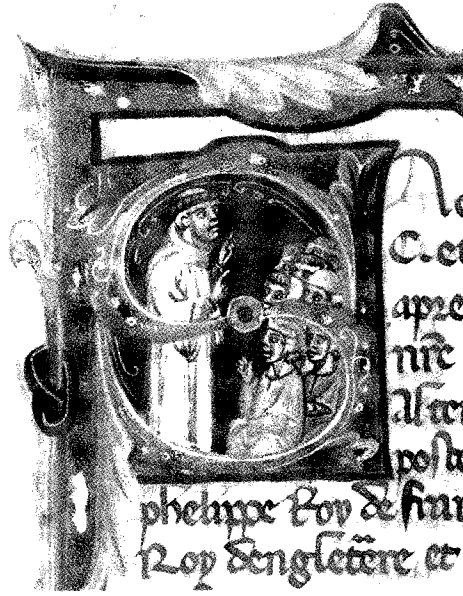 C. et
apre
nr̃e
post
phelippe Roy de fran
Roy dengletẽre et